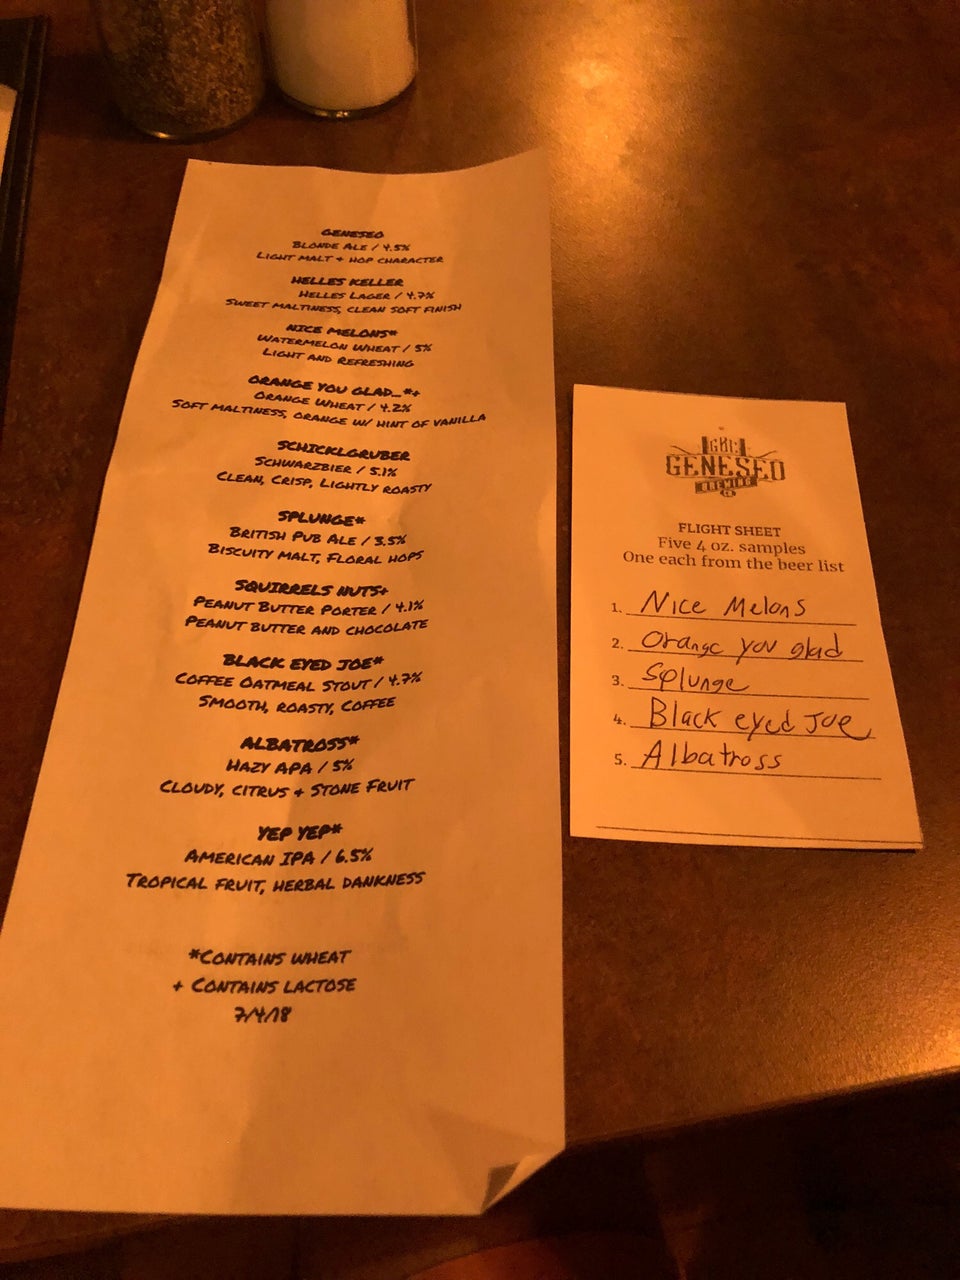 GENESEO
BLONDE ALE / 4.5%
LIGHT MALT + HOP CHARACTER
HELLES KELLER
HELLES LAGER / 4.7%
SWEET MALTINESS, CLEAN SOFT FINISH
NICE MELONS*
WATERMELON WHEAT / 5%
LIGHT AND REFRESHING
ORANGE YOU GLAD...*+
ORANGE WHEAT / 4.2%
SOFT MALTINESS, ORANGE W/ HINT OF VANILLA
SCHICKLGRUBER
SCHWARZBIER / 5.1%
CLEAN, CRISP, LIGHTLY ROASTY
SPLUNGE*
BRITISH PUB ALE / 3.5%
BISCUITY MALT, FLORAL HOPS
SQUIRRELS NUTS+
PEANUT BUTTER PORTER / 4.1%
PEANUT BUTTER AND CHOCOLATE
BLACK EYED JOE*
COFFEE OATMEAL STOUT / 4.7%
SMOOTH, ROASTY, COFFEE
ALBATROSS*
HAZY APA / 5%
CLOUDY, CITRUS + STONE FRUIT
YEP YEP*
AMERICAN IPA / 6.5%
TROPICAL FRUIT, HERBAL DANKNESS
*CONTAINS WHEAT
+ CONTAINS LACTOSE
7/4/18
GBC
GENESEO
BREWING
CO
FLIGHT SHEET
Five 4 oz. samples
One each from the beer list
1. Nice Melons
2. Orange you glad
3. Splunge
4. Black eyed Joe
5. Albatross